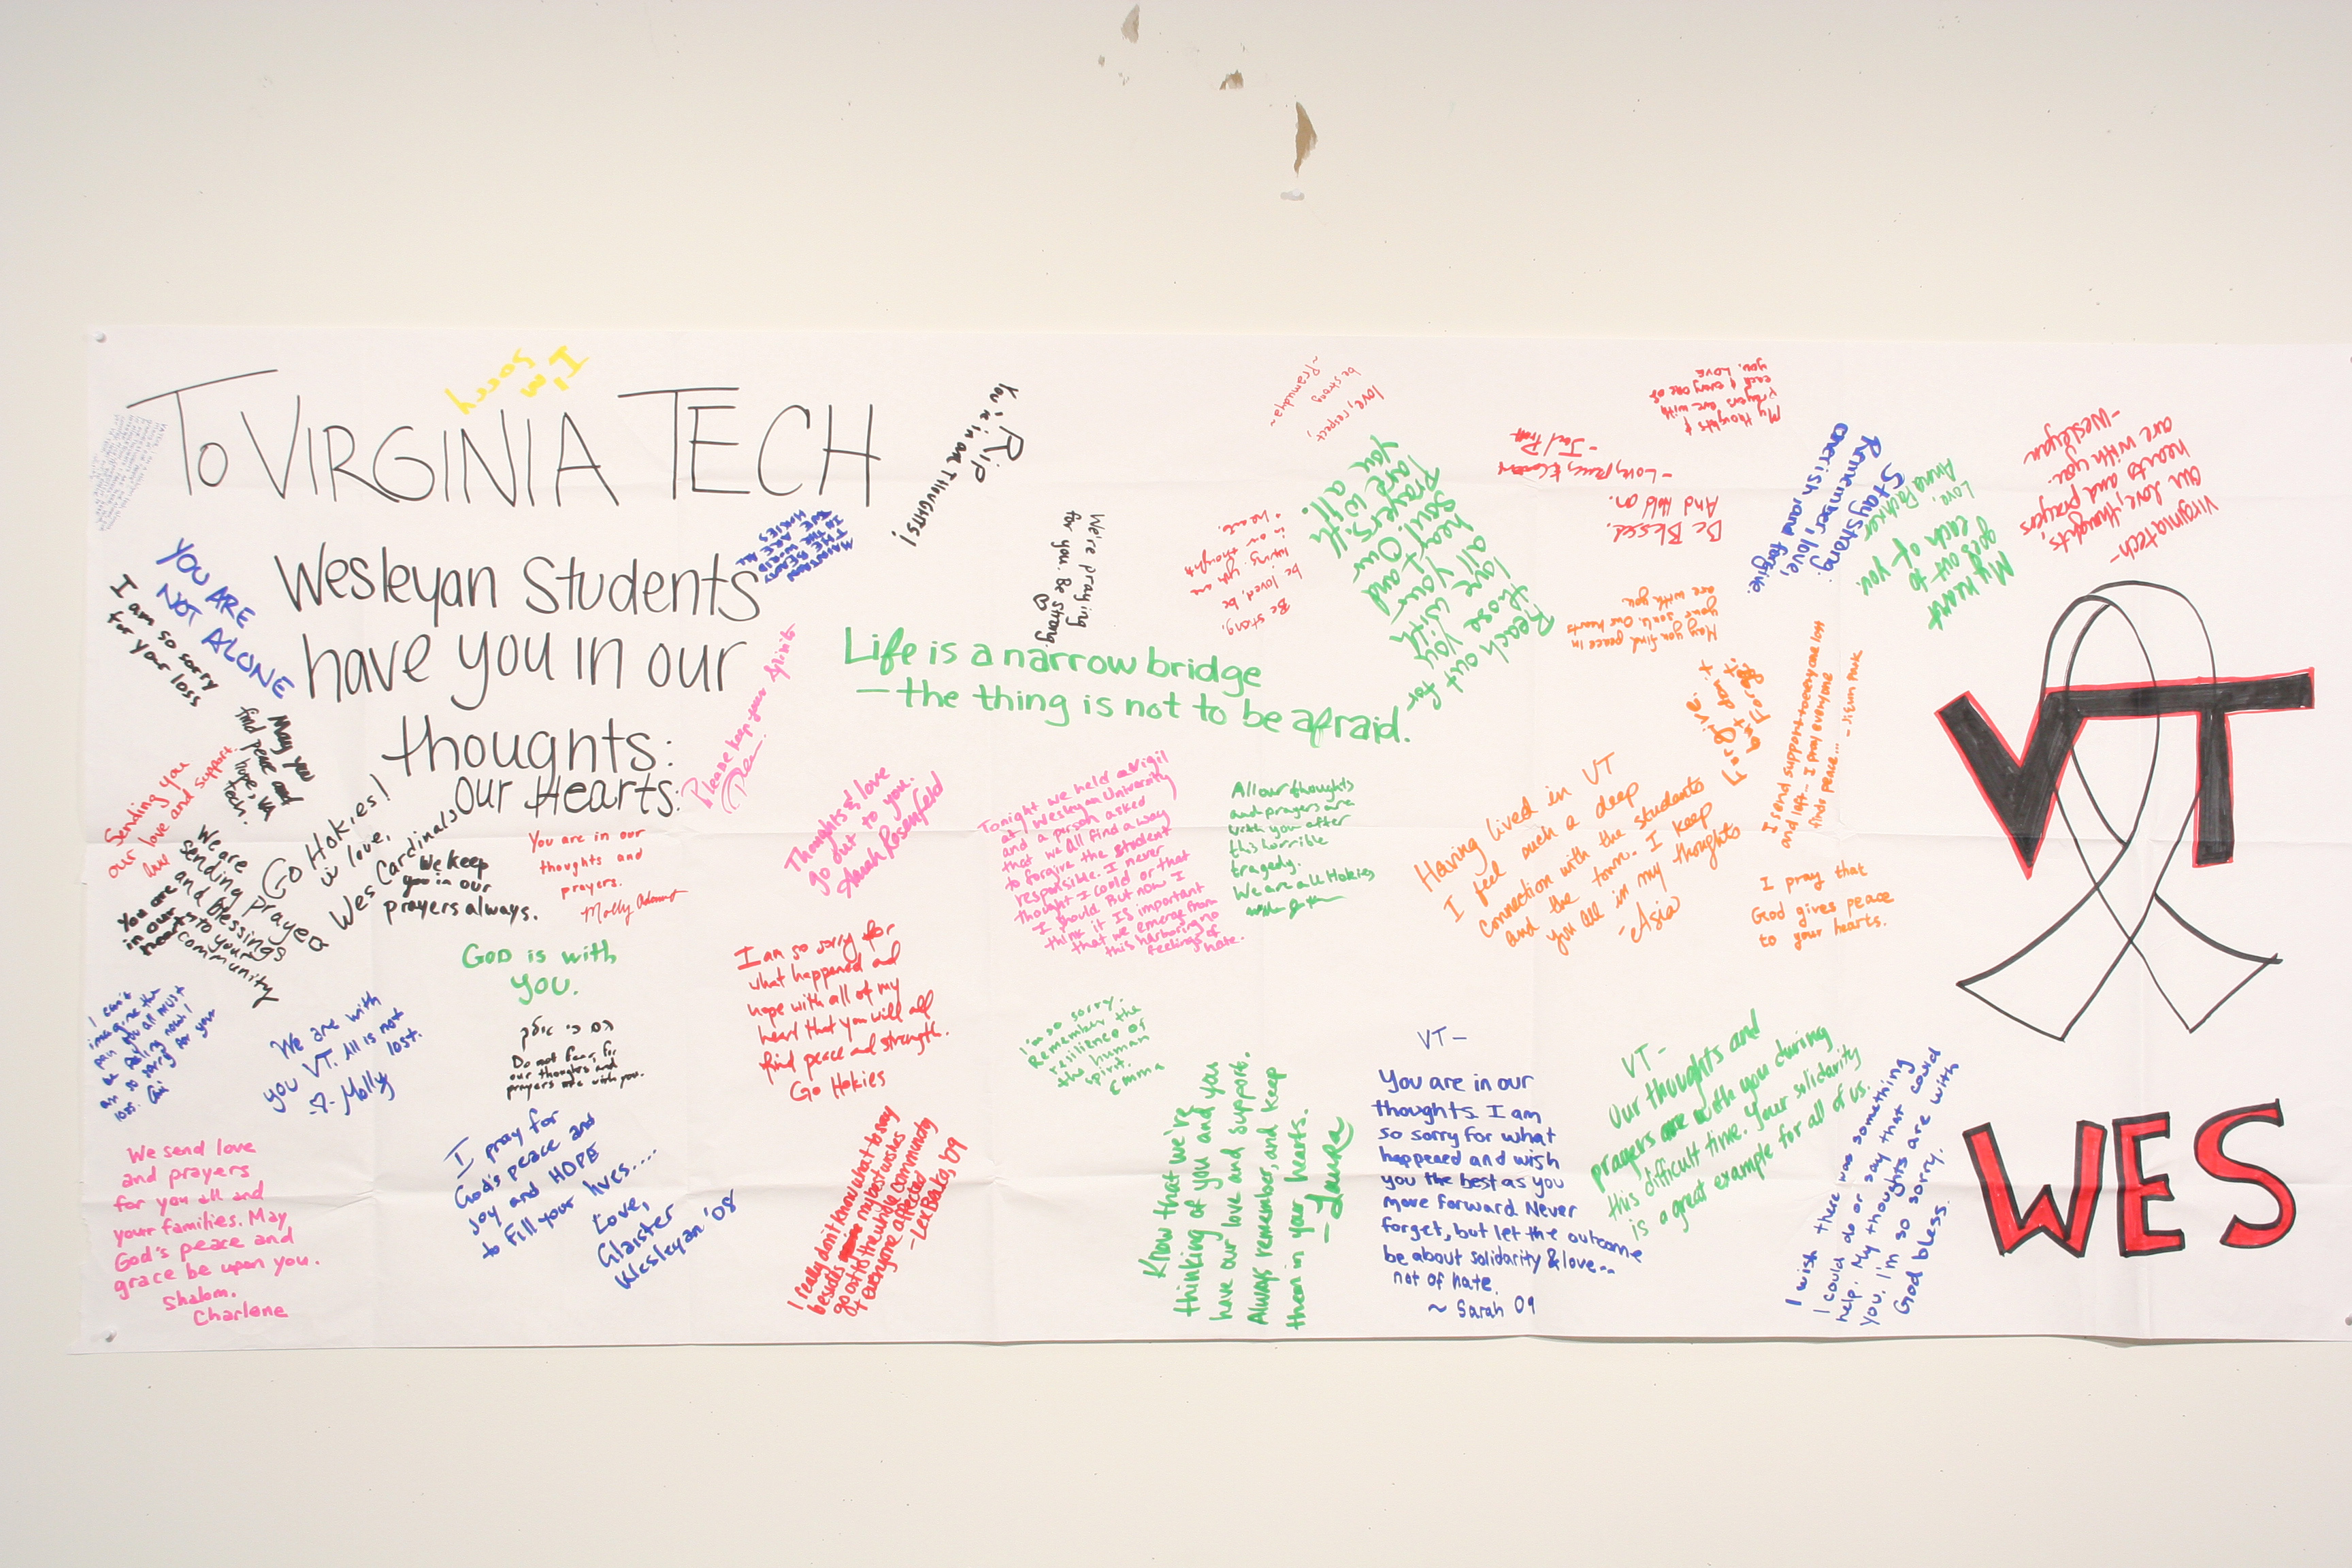 To VIRGINIA TECH
Wesleyan Students
have you in our
thoughts:
our Hearts.
I'm
sorry
YOU ARE
NOT ALONE
I am so sorry
for your loss
May you
find peace and
hope, VA
Tech.
Sending you
our love and support
We are
sending prayers
and blessings
into your
community
You are
in our
heart
Go Hokies!
in love,
Wes Cardinals
We keep
you in our
prayers always.
You are in our
thoughts and
prayers.
Molly
GOD is with
YOU.
Do not fear, for
our thoughts and
prayers are with you.
I can't
imagine the
pain you all must
be feeling now!
am so sorry for your
loss.
We are with
you VT. All is not
lost.
- Molly
We send love
and prayers
for you all and
your families. May
God's peace and
grace be upon you.
Shalom.
Charlene
I pray for
God's peace and
joy and HOPE
to fill your lives....
Love,
Glaister
Wesleyan '08
Please keep your spirits
Thoughts & love
go out to you.
Rosenfeld
I am so sorry for
what happened and
hope with all of my
heart that you will all
find peace and strength.
Go Hokies
I really don't know what to say
besides my best wishes
go out to the whole community
& everyone affected
RIP
You're in our THOUGHTS!
We're praying
for you. Be strong.
Life is a narrow bridge
– the thing is not to be afraid.
Tonight we held a vigil
at Wesleyan University
and a person asked
that we all find a way
to forgive the student
responsible. I never
thought I could or that
I should. But now I
think it IS important
that we emerge from
this harboring no
feelings of
hate.
All our thoughts
and prayers are
with you after
this horrible
tragedy.
We are all Hokies
I'm so sorry.
Remember the
resilience of
the human
spirit.
Emma
Know that we're
thinking of you and you
have our love and support.
Always remember, and keep
them in your hearts.
- Laura
love, respect,
be strong
Be strong,
be loved, be
loving. you are
in our thoughts
+ hearts.
Reach out for
those you
love with
all your
heart and
soul. Our
Prayers
are with
you all.
Be Blessed.
And Hold on.
My thoughts &
prayers are with
each & every one of
you. LOVE
May you find peace in
your souls. Our hearts
are with you.
Stay strong.
Remember, love,
cherish, and forgive.
My heart
goes out to
each of you.
Love,
Anna
Virginia tech-
our love, thoughts,
hearts and prayers
are with you.
-Wesleyan
I send support to everyone lost
and left - I pray everyone
finds peace...
Having lived in VT
I feel such a deep
connection with the students
and the town. I keep
you all in my thoughts
-Asia
I pray that
God gives peace
to your hearts.
VT-
You are in our
thoughts. I am
so sorry for what
happened and wish
you the best as you
move forward. Never
forget, but let the outcome
be about solidarity & love..
not of hate.
~ Sarah 09
VT-
Our thoughts and
prayers are with you during
this difficult time. Your solidarity
is a great example for all of us.
I wish there was something
I could do or say that could
help. My thoughts are with
you. I'm so sorry.
God bless.
VT
WES